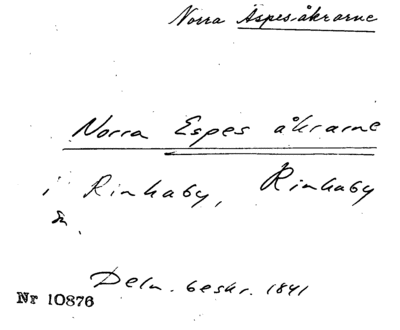 Norra Aspesåkrarne
Norra Espes åkrarne
i Rinkaby, Rinkaby
sn.
Deln. beskr. 1841
Nr 10876